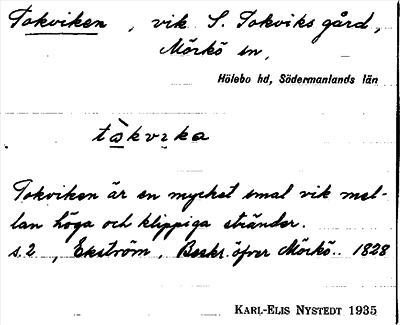 Tokviken, vik S. Tokviks gård,
Mörkö sn,
Hölebo hd, Södermanlands län
tò̱kvɪka
Tokviken är en mycket smal vik mel-
lan höga och klippiga stränder.
s. 2, Ekström, Beskr. öfver Mörkö.. 1828
KARL-ELIS NYSTEDT 1935